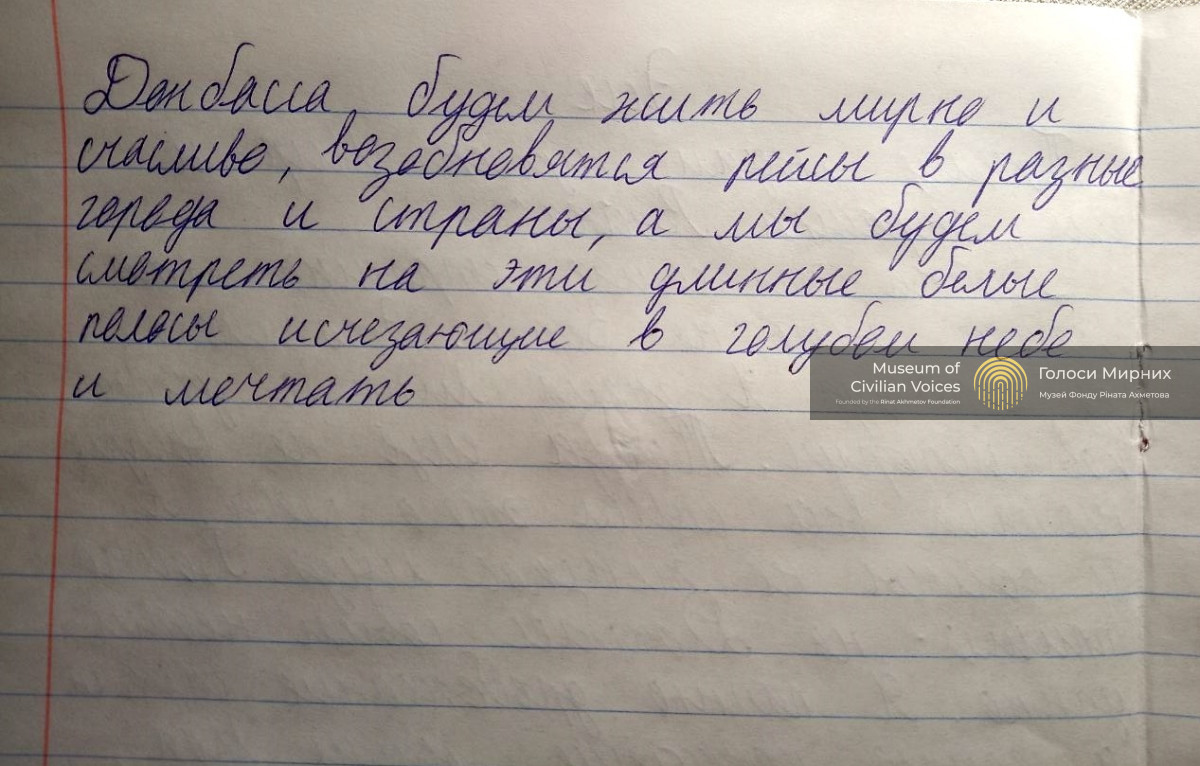 Донбасса, будем жить мирно и
счасливо, возобновятся рейсы в разные
города и страны, а мы будем
смотреть на эти длинные белые
полосы исчезающие в голубом небе
и мечтать
Museum of
Civilian Voices
Founded by the Rinat Akhmetov Foundation
Голоси Мирних
Музей Фонду Ріната Ахметова